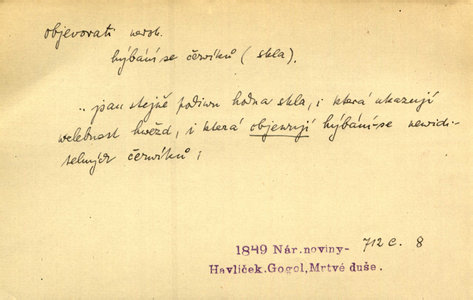 objevovati nedok.
hýbání se červíků (skla).
„jsou stejně podivu hodna skla, i která ukazují
velebnost hvězd, i která objewují hýbání-se newidi-
telných červíků;
1849 Nár. noviny- 712 C. 8
Havlíček. Gogol, Mrtvé duše.